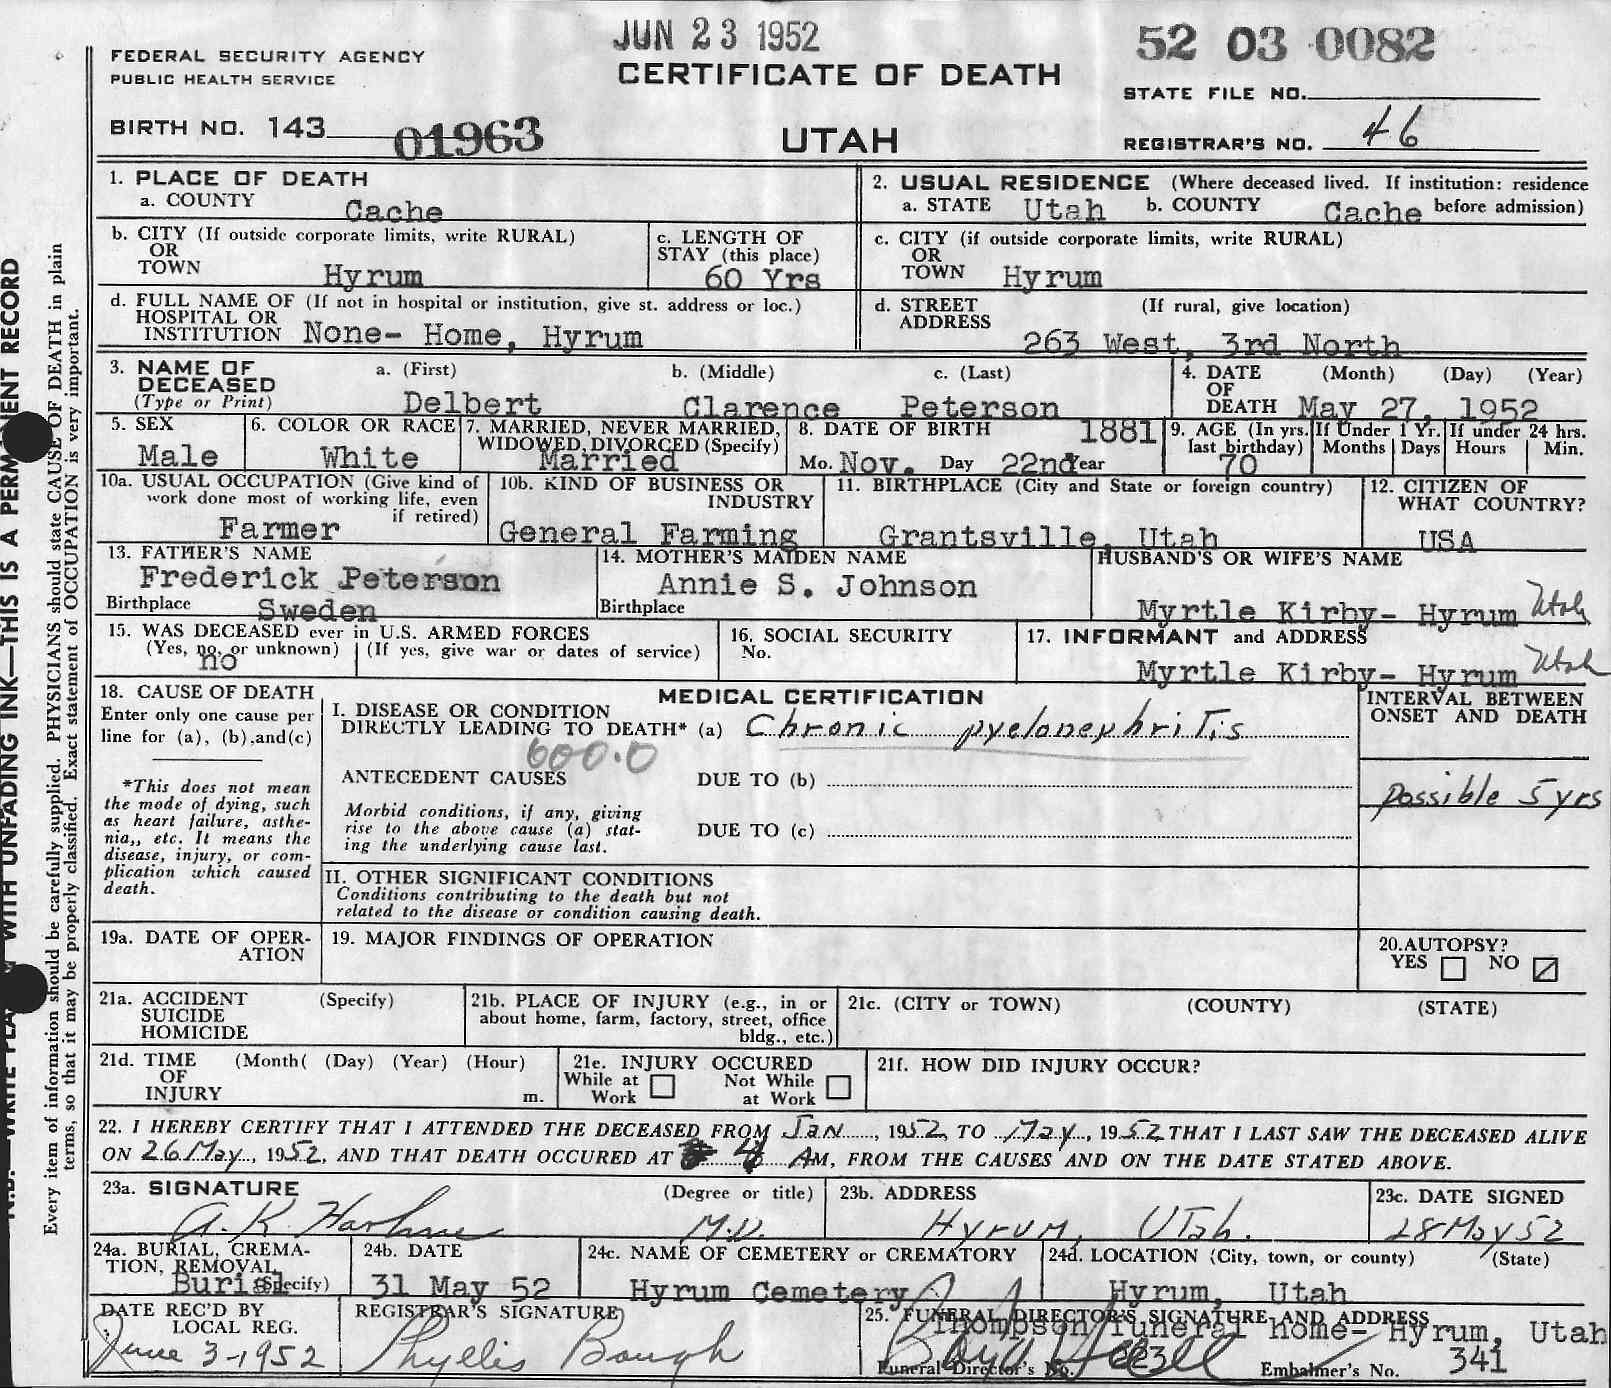 JUN 23 1952
52 03 0082
FEDERAL SECURITY AGENCY
PUBLIC HEALTH SERVICE
CERTIFICATE OF DEATH
STATE FILE NO.
BIRTH NO. 143 01963
UTAH
REGISTRAR'S NO. 46
1. PLACE OF DEATH
a. COUNTY Cache
2. USUAL RESIDENCE (Where deceased lived. If institution: residence before admission)
a. STATE Utah b. COUNTY Cache
b. CITY (If outside corporate limits, write RURAL)
OR
TOWN Hyrum
c. LENGTH OF
STAY (this place)
60 Yrs
c. CITY (if outside corporate limits, write RURAL)
OR
TOWN Hyrum
d. FULL NAME OF (If not in hospital or institution, give st. address or loc.)
HOSPITAL OR
INSTITUTION None- Home, Hyrum
d. STREET (If rural, give location)
ADDRESS
263 West, 3rd North
3. NAME OF a. (First) b. (Middle) c. (Last)
DECEASED
(Type or Print) Delbert Clarence Peterson
4. DATE (Month) (Day) (Year)
OF
DEATH May 27, 1952
5. SEX
Male
6. COLOR OR RACE
White
7. MARRIED, NEVER MARRIED,
WIDOWED, DIVORCED (Specify)
Married
8. DATE OF BIRTH 1881
Mo. Nov. Day 22nd Year
9. AGE (In yrs. last birthday)
70
If Under 1 Yr.
Months Days
If under 24 hrs.
Hours Min.
10a. USUAL OCCUPATION (Give kind of
work done most of working life, even
if retired)
Farmer
10b. KIND OF BUSINESS OR
INDUSTRY
General Farming
11. BIRTHPLACE (City and State or foreign country)
Grantsville, Utah
12. CITIZEN OF
WHAT COUNTRY?
USA
13. FATHER'S NAME
Frederick Peterson
Birthplace Sweden
14. MOTHER'S MAIDEN NAME
Annie S. Johnson
Birthplace
HUSBAND'S OR WIFE'S NAME
Myrtle Kirby- Hyrum Utah
15. WAS DECEASED ever in U.S. ARMED FORCES
(Yes, no, or unknown) (If yes, give war or dates of service)
no
16. SOCIAL SECURITY
No.
17. INFORMANT and ADDRESS
Myrtle Kirby- Hyrum Utah
18. CAUSE OF DEATH
Enter only one cause per
line for (a), (b), and (c)
*This does not mean
the mode of dying, such
as heart failure, asthe-
nia,, etc. It means the
disease, injury, or com-
plication which caused
death.
MEDICAL CERTIFICATION
I. DISEASE OR CONDITION
DIRECTLY LEADING TO DEATH* (a) Chronic pyelonephritis
600.0
ANTECEDENT CAUSES DUE TO (b)
Morbid conditions, if any, giving
rise to the above cause (a) stat-
ing the underlying cause last.
DUE TO (c)
II. OTHER SIGNIFICANT CONDITIONS
Conditions contributing to the death but not
related to the disease or condition causing death.
INTERVAL BETWEEN
ONSET AND DEATH
possible 5 yrs
19a. DATE OF OPER-
ATION
19. MAJOR FINDINGS OF OPERATION
20.AUTOPSY?
YES NO
21a. ACCIDENT (Specify)
SUICIDE
HOMICIDE
21b. PLACE OF INJURY (e.g., in or
about home, farm, factory, street, office
bldg., etc.)
21c. (CITY or TOWN) (COUNTY) (STATE)
21d. TIME (Month( (Day) (Year) (Hour)
OF
INJURY m.
21e. INJURY OCCURED
While at Work Not While at Work
21f. HOW DID INJURY OCCUR?
22. I HEREBY CERTIFY THAT I ATTENDED THE DECEASED FROM Jan, 1952, TO May, 1952 THAT I LAST SAW THE DECEASED ALIVE
ON 26 May, 1952, AND THAT DEATH OCCURED AT 4 AM, FROM THE CAUSES AND ON THE DATE STATED ABOVE.
23a. SIGNATURE (Degree or title)
A. K. M.D.
23b. ADDRESS
Hyrum, Utah.
23c. DATE SIGNED
28 May 52
24a. BURIAL, CREMA-
TION, REMOVAL
(Specify) Burial
24b. DATE
31 May 52
24c. NAME OF CEMETERY or CREMATORY
Hyrum Cemetery
24d. LOCATION (City, town, or county) (State)
Hyrum, Utah
DATE REC'D BY
LOCAL REG.
June 3-1952
REGISTRAR'S SIGNATURE
Phyllis Baugh
25. FUNERAL DIRECTOR'S SIGNATURE AND ADDRESS
Thompson funeral home- Hyrum, Utah
Funeral Director's No. Embalmer's No. 341
N.B. WRITE WITH UNFADING INK—THIS IS A PERMANENT RECORD
Every item of information should be carefully supplied. PHYSICIANS should state CAUSE OF DEATH in plain
terms, so that it may be properly classified. Exact statement of OCCUPATION is very important.